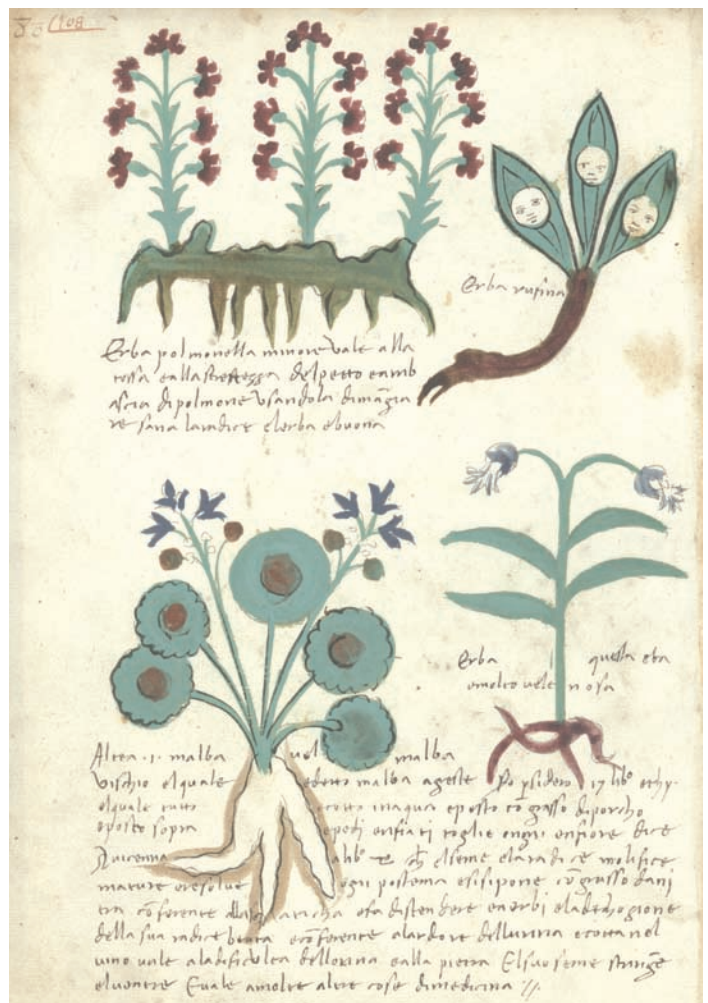 108
Erba polmonella minore vale alla
tossa e alla strettezza del petto e amb
ascia di polmone usandola di mãgia
re sana la radice e lerba e buona
Erba rufina
Erba questa eba
e molto velenosa
Altea .i. malba vel malba
vischio el quale e detto malba agreste
el quale tutto cotto in aqua e posto cõ grasso di porcho
e posto sopra e pedi enfiati toglie ongni enfiore dice
Avicenna a lib° el seme e la radice molifice
mature e resolve ogni postema e sisipone cõ grasso dani
tra cõferente distendere e nerbi e la
della sua radice beuta e cõferente a lardore dellurina e cotta nel
vino vale a la dificulta dellorina e alla pietra El suo seme stringe
el ventre E vale a molte altre cose di medicina //.